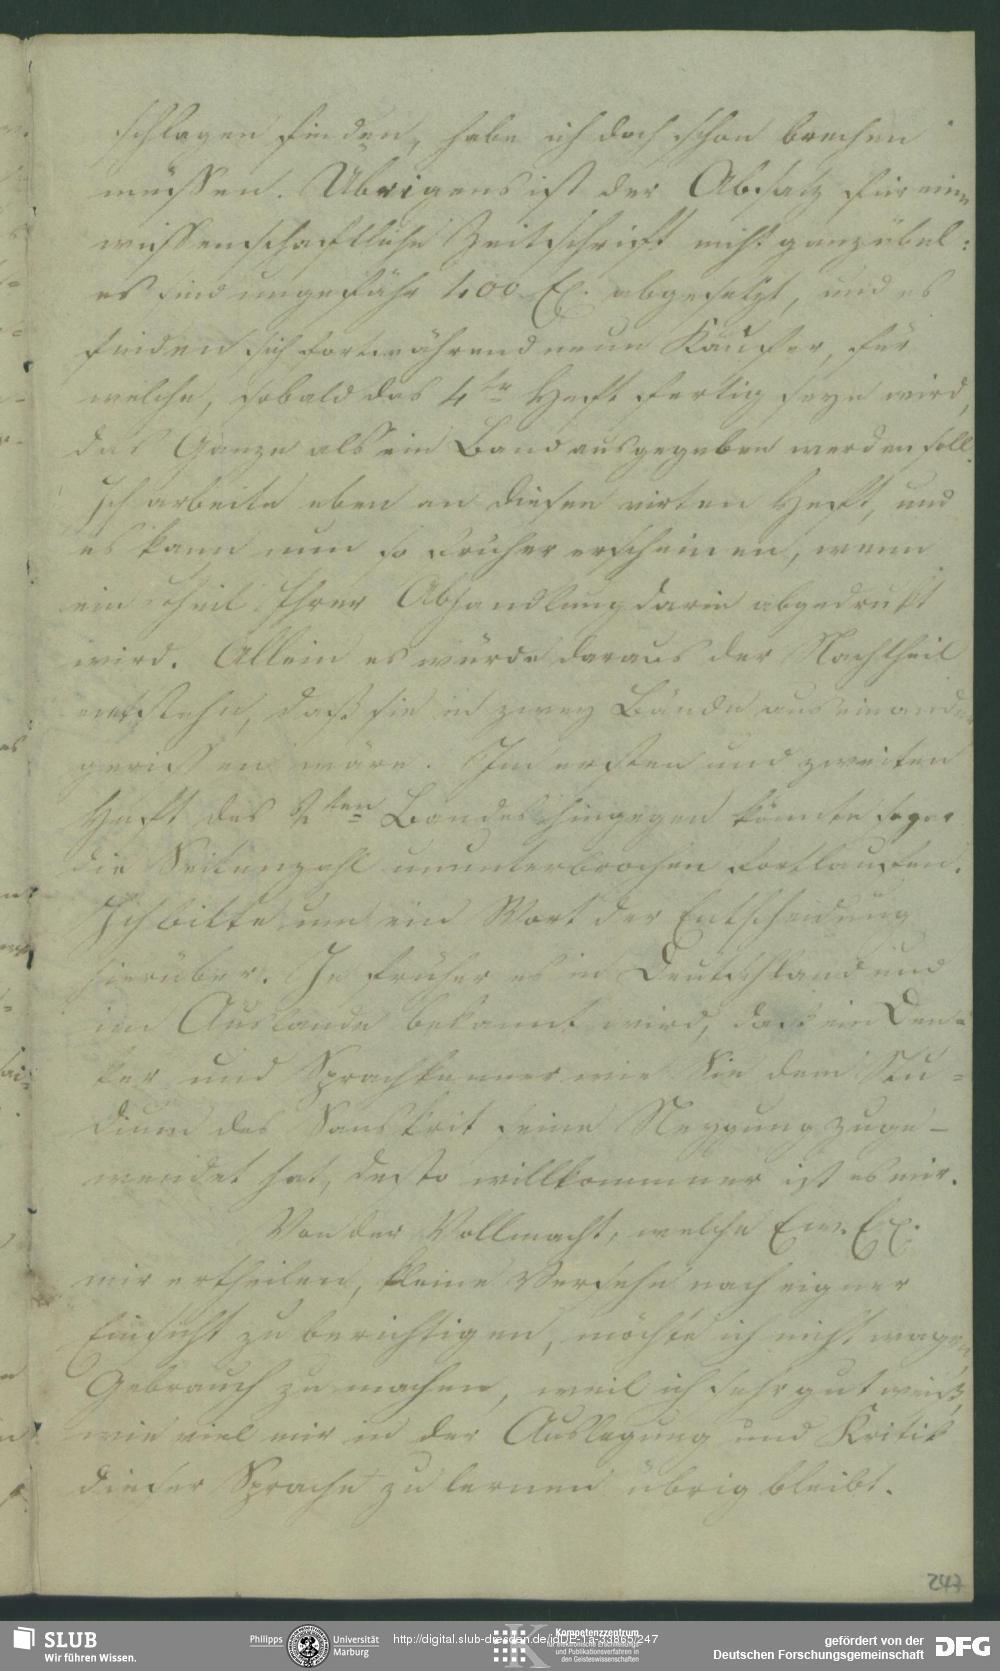 schlagen finden, habe ich doch schon brechen
müssen. Übrigens ist der Absatz für eine
wissenschaftliche Zeitschrift nicht ganz übel:
es sind ungefähr 400 Ex. abgesetzt, und es
finden sich fortwährend neue Käufer, für
welche, sobald das 4te Heft fertig seyn wird,
das Ganze als ein Band ausgegeben werden soll.
Ich arbeite eben an diesen virten Heft, und
es kann um so früher erscheinen, wenn
ein Theil Ihrer Abhandlung darin abgedruckt
wird. Allein es würde daraus der Nachtheil
entstehn, daß sie in zwey Bände auseinander
gerissen wäre. Im ersten und zweiten
Heft des 2ten Bandes hingegen könnte sogar
die Seitenzahl ununterbrochen fortlaufen.
Ich bitte um ein Wort der Entscheidung
hierüber. Je früher es in Deutschland und
im Auslande bekannt wird, daß ein Den-
ker und Sprachkenner wie Sie dem Stu-
dium des Sanskrit seine Neygung zuge-
wendet hat, desto willkommner ist es mir.
Von der Vollmacht, welche Ew. Ex.
mir ertheilen, kleine Versehn nach eigner
Einsicht zu berichtigen, möchte ich nicht wagen,
Gebrauch zu machen, weil ich sehr gut weiß,
wie viel mir in der Auslegung und Kritik
dieser Sprache zu lernen übrig bleibt.
247
SLUB
Wir führen Wissen.
Philipps Universität
Marburg
http://digital.slub-dresden.de/idDE-1a-33865/247
Kompetenzzentrum
für elektronische Erschließungs-
und Publikationsverfahren in
den Geisteswissenschaften
gefördert von der
Deutschen Forschungsgemeinschaft
DFG